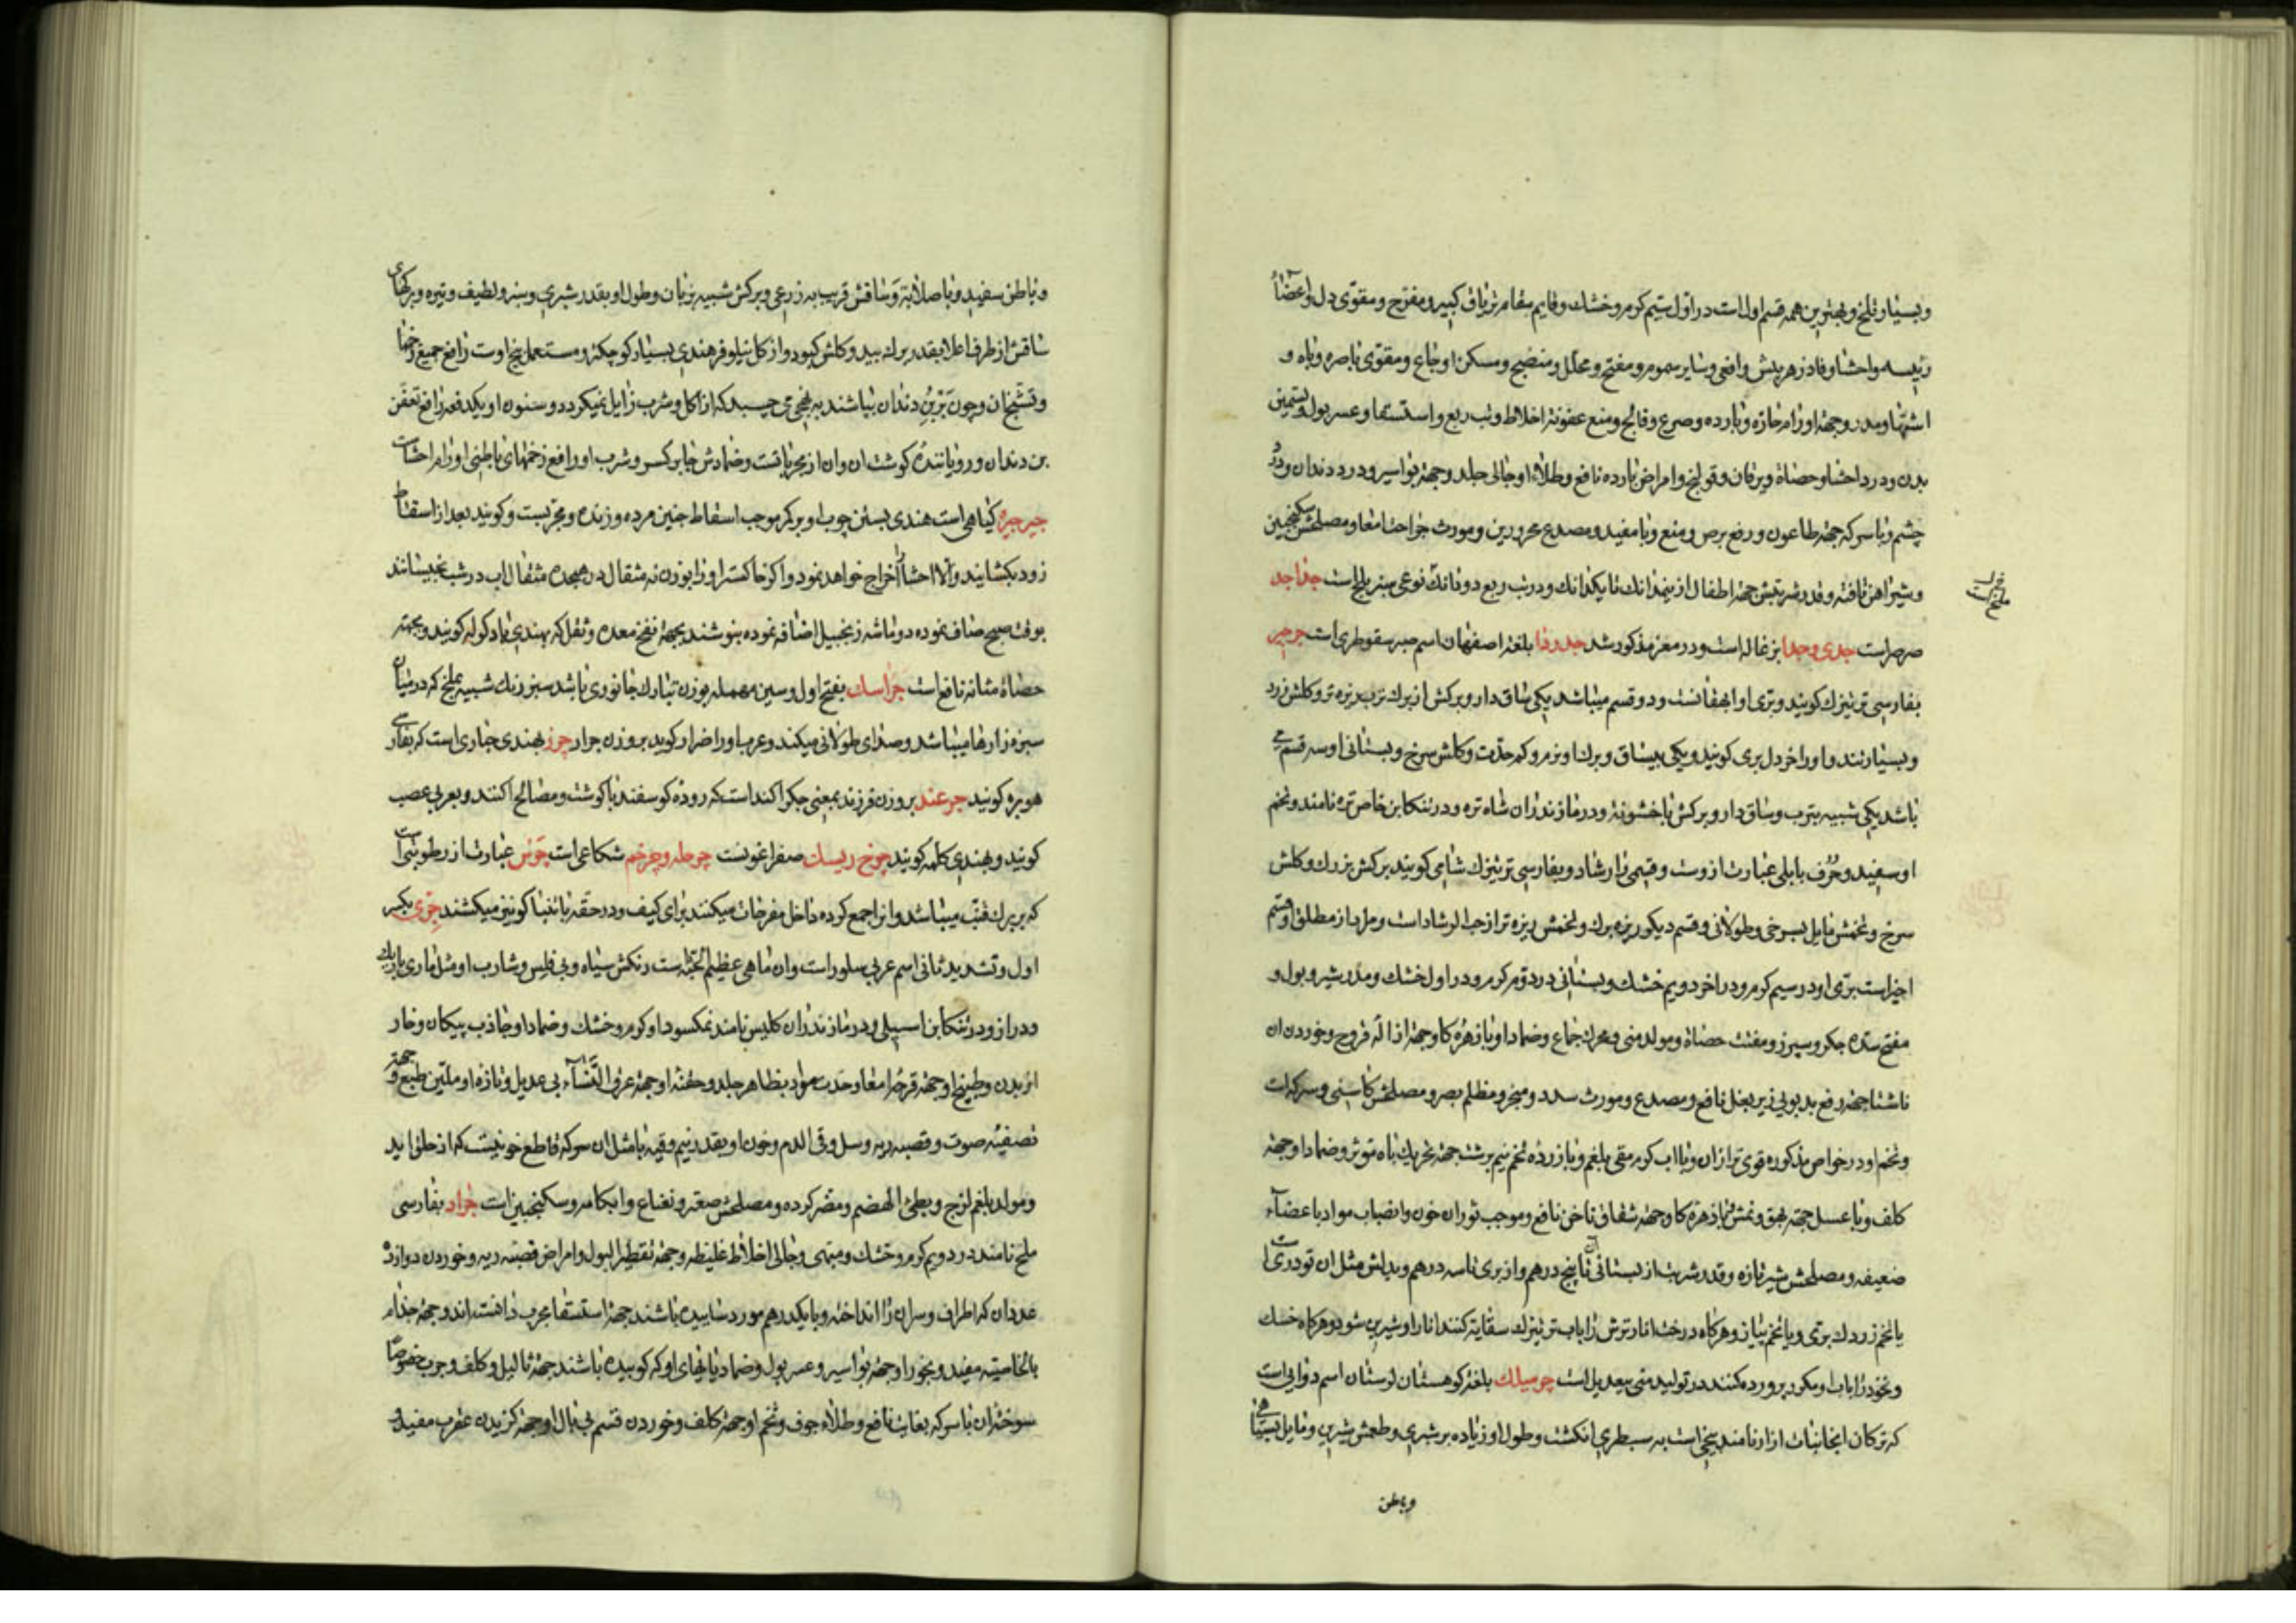 وبسیار تلخ وبهترین همه قسم اول است در اول سیم کرم وخشك وقایم مقام تریاق کبیر ومفرح ومقوی دل واعضاء
رئیسه واحشا وفادزهر بیش وافعی وسایر سموم ومفتح ومحلل ومنضج ومسکن اوجاع ومقوی باصره وباه و
اشتها ومدر وجهة اورام حاره وبارده وصرع وفالج ومنع عفونة اخلاط وتب ربع واستسقا وعسر بول وتسمین
بدن ودرد احشا وحصاة ویرقان وقولنج وامراض بارده نافع وطلاء او جالی جلد وجهة بواسیر ودرد دندان ودرد
چشم وباسرکه جهة طاعون ورفع برص ومنع وبا مفید ومصدع محرورین ومورث جراحت امعا ومصلحش سکنجبین
وشیر اهن تافته وقدر شربتش جهة اطفال از نیمدانك تا یکدانك ودر تب ربع دو دانك نوعی سبز ملخ است جداجد
صرصر است جدی وجدا بزغاله است ودر معز مذکور شد جدوذا بلغة اصفهان اسم صبر سقوطری است جرجیر
بفارسی ترتیزك کویند وبری او ایهقانست ودو قسم میباشد یکی ساق دار وبرکش از برك ترب ریزه تر وکلش زرد
وبسیار تند واورا خردل بری کویند ویکی بیساق وبرك او نرم وکم حدت وکلش سرخ وبستانی او سه قسم می
باشد یکی شبیه بترب وساق دار وبرکش باخشونة ودر مازندران شاه تره ودر تنکابن خاص تره نامند وتخم
او سفید وحرف بابلی عبارت از وست وقسمی را رشاد وبفارسی ترتیزك شامی کویند برکش بزرك وکلش
سرخ وتخمش مایل بسرخی وطولانی وقسم دیکر ریزه برك وتخمش ریزه تر از حب الرشاد است ومراد از مطلق او قسم
اخیر است بری او در سیم کرم ودر اخر دویم خشك وبستانی در دوم کرم ودر اول خشك ومدر شیر وبول و
مفتح سده جکر وسپرز ومفتت حصاة ومولد منی ومحرك جماع وضماد او بازهره کاو جهة ازاله قروح وخوردن ان
ناشتا جهة رفع بدبویی زیر بغل نافع ومصدع ومورث سدد ومبخر ومظلم بصر ومصلحش کاسنی وسرکه است
وتخم او در خواص مذکوره قوی تر از ان وبا اب کرم مقی بلغم وبا زرده تخم نیم برشت جهة تحریك باه موثر وضماد او جهة
کلف وبا عسل جهة بهق ونمش وبازهره کاو جهة شقاق ناخن نافع وموجب ثوران خون وانصباب مواد باعضاء
ضعیفه ومصلحش شیر تازه وقدر شربت از بستانی تا پنج درهم واز بری تا سه درهم وبدلش مثل ان تودری است
یا تخم زردك بری ویا تخم پیاز وهرکاه درخت انار ترش را باب ترتیزك سقایه کنند انار او شیرین شود وهرکاه خسك
ونخود را باب او مکرر پرورده کنند در تولید منی بیعدیل است جرمیلك بلغة کوهستان لرستان اسم دوایی است
که ترکان ایجانبات ازار نامند بیخی است به سطبری انکشت وطول او زیاده بر شبری وطعمش شیرین ومایل بسیاهی
وباطن
ملخ است
وباطن سفید وباصلابة وساقش قریب بذرعی وبرکش شبیه بزبان وطول او بقدر شبری وسبز ولطیف وتیره وبرکهای
ساقش از طرف اعلا بقدر برك بید وکلش کبود واز کل نیلوفر هندی بسیار کوچکتر ومستعمل بیخ اوست رافع جمیع زخمها
وقشجان وچون بربن دندان بپاشند به نحوی می چسبد که از اکل وشرب زایل نمیکردد وسنون او یکدفعه رافع تعفن
بن دندان ورویاننده کوشت ان وان از مجرباتست وضمادش جابر کسر وشرب او رافع زخمهای باطنی واورام احشاست
جیرجیره کیاهی است هندی بستن چوب او بر کمر موجب اسقاط جنین مرده وزنده ومجربست وکویند بعد از اسقاط
زود بکشایند والا احشا را اخراج خواهد نمود واکر خاکستر او را بوزن نه مثقال در هیجده مثقال اب در شب بخیسانند
بوقت صبح صاف نموده دو ماشه زنجبیل اضافه نموده بنوشند بجهة نفخ معده وثقل که بهندی باد کوله کویند وبجهة
حصاة مثانه نافع است جراسك بفتح اول وسین مهمله بوزن تبارك جانوری باشد سبز رنك شبیه بملخ که در میان
سبزه زارها میباشد وصدای طولانی میکند وعرب اورا ضرار کوید بروزن جرار جرز بهندی حباری است که بفارسی
هوبره کویند جرغند بروزن فرزند بمعنی جکر اکند است که روده کوسفند با کوشت ومصالح اکنند وبعربی عصب
کویند وبهندی کلمه کویند چرخ ریسك صفراغونست چرطه وچرخم شکاعی است چرس عبارت از رطوبتی است
که بر برك قنب میباشد وانرا جمع کرده داخل مفرحات میکنند برای کیف ودر حقه با تنباکو نیز میکشند جری بکسر
اول وتشدید ثانی اسم عربی سلور است وان ماهی عظیم الجثه ست رنکش سیاه وبی فلس وشارب او مثل ماری باریك
ودراز ودر تنکابن اسپیلی ودر مازندران کلیس نامند نمکسود او کرم وخشك وضماد او جاذب پیکان وخار
از بدن وطبیخ او جهة قرحه امعا وحدت مواد بظاهر جلد وحقنه او جهة عرق النساء بی عدیل وتازه او ملین طبع وجهة
تصفیه صوت وقصبه ریه وسل وقی الدم وخون او بقدر نیم وقیه با مثل ان سرکه قاطع خونیست که از حلق اید
ومولد بلغم لزج وبطئ الهضم ومضر کرده ومصلحش صعتر ونعناع وابکامه وسکنجبین است جراد بفارسی
ملخ نامند در دویم کرم وخشك ومبهی وجالی اخلاط غلیظه وجهة تقطیر البول وامراض قصبه ریه وخوردن دوازده
عدد ان که اطراف وسر ان را انداخته وبا یکدرهم مورد ساییده باشند جهة استسقا مجرب دانسته اند وجهة جذام
بالخاصیة مفید وبخور او جهة بواسیر وعسر بول وضماد پاهای او که کوبیده باشند جهة ثالیل وکلف وجرب خصوصا
سوخته ان با سرکه بغایت نافع وطلاء جوف وتخم او جهة کلف وخوردن قسم بی بال او جهة کزیدن عقرب مفید